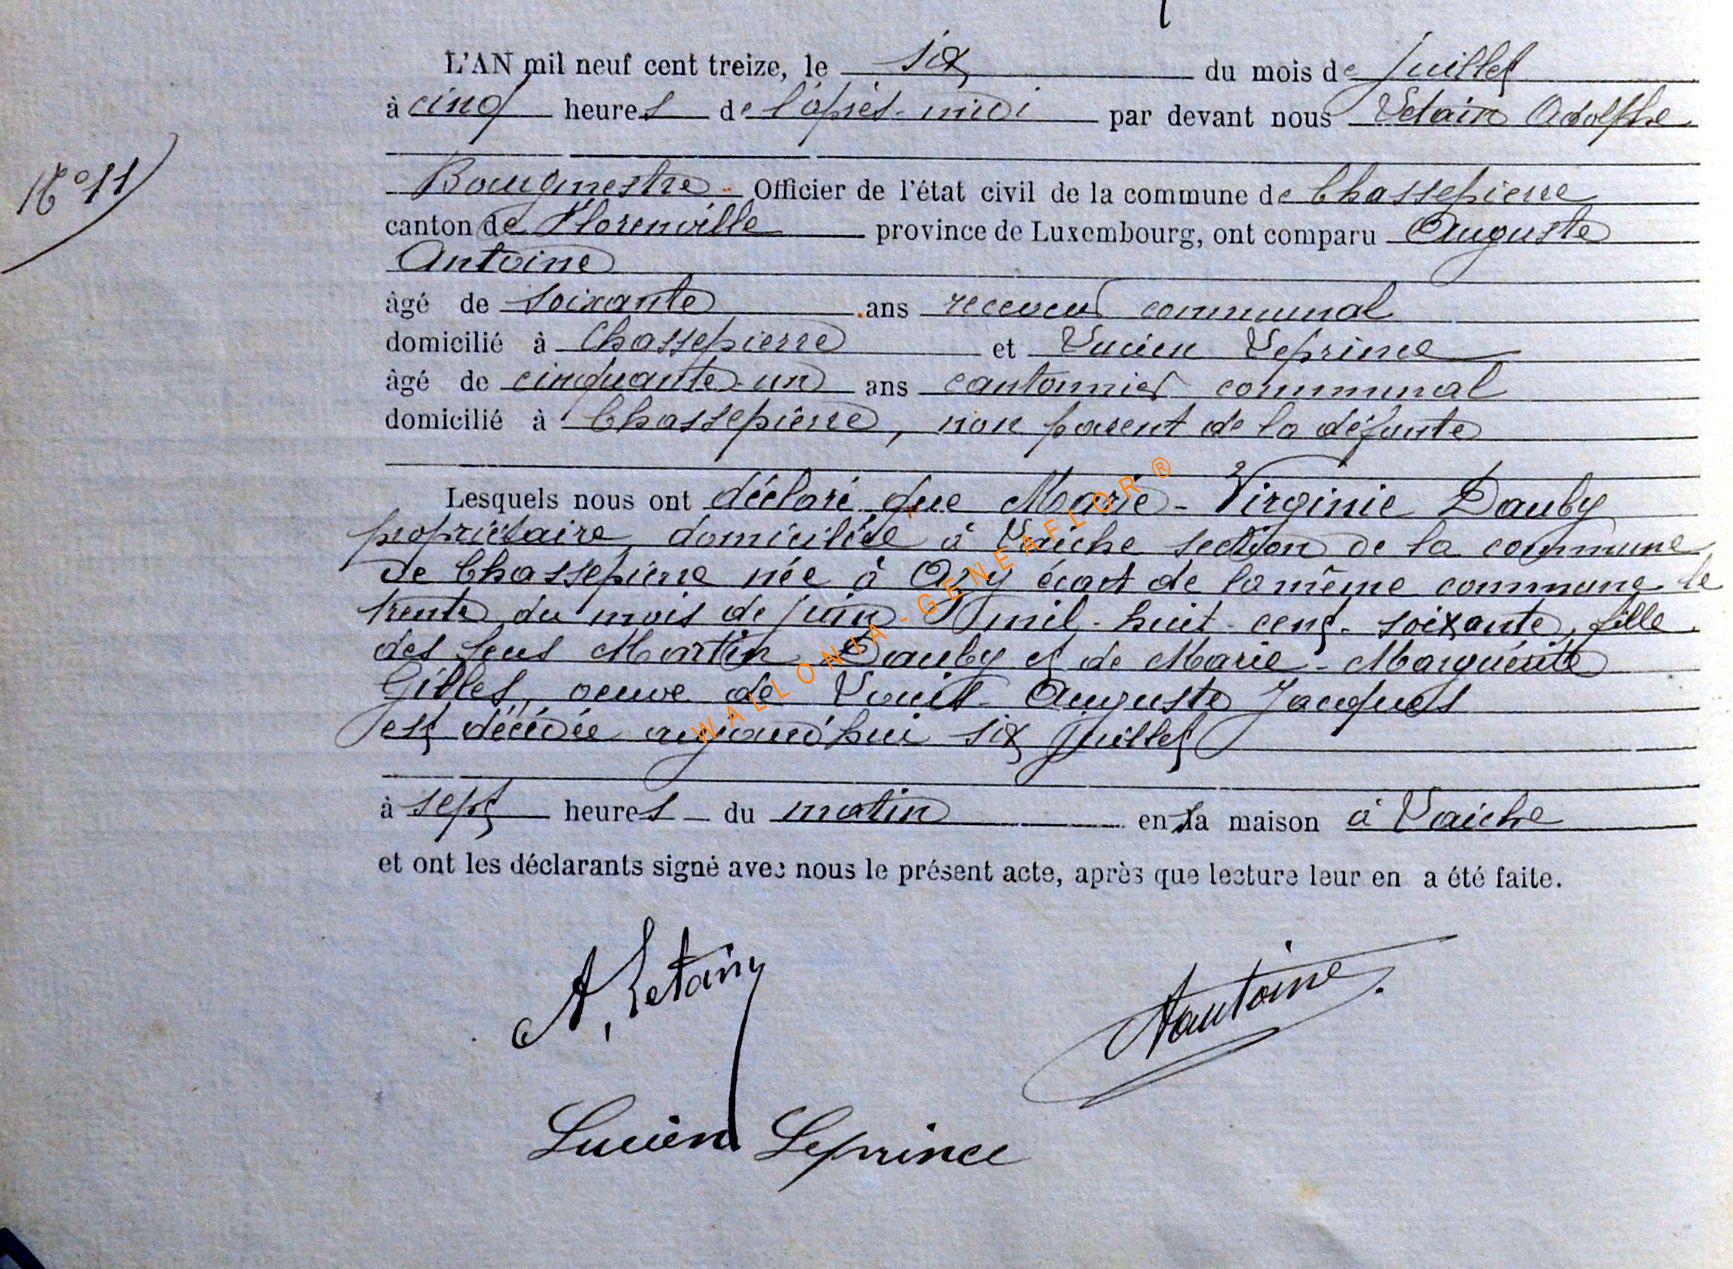 L'AN mil neuf cent treize, le six du mois de juillet
à cinq heures de l'après-midi par devant nous Letain Adolphe
N° 11
Bourgmestre Officier de l'état civil de la commune de Chassepierre
canton de Florenville province de Luxembourg, ont comparu Auguste
Antoine
âgé de soixante ans receveur communal
domicilié à Chassepierre et Lucien Leprince
âgé de cinquante-un ans cantonnier communal
domicilié à Chassepierre, non parent de la défunte
Lesquels nous ont déclaré que Marie-Virginie Dauby
propriétaire domiciliée à Laiche section de la commune
de Chassepierre née à Azy écart de la même commune le
trente du mois de juin mil-huit-cent-soixante, fille
des feus Martin Dauby et de Marie-Marguérite
Gilles, veuve de Louis-Auguste Jacques
est décédée aujourd'hui six juillet
à sept heures du matin en la maison à Laiche
et ont les déclarants signé avec nous le présent acte, après que lecture leur en a été faite.
A. Letain
Aantoine
Lucien Leprince
WALLONIA-GENEAFLOR®